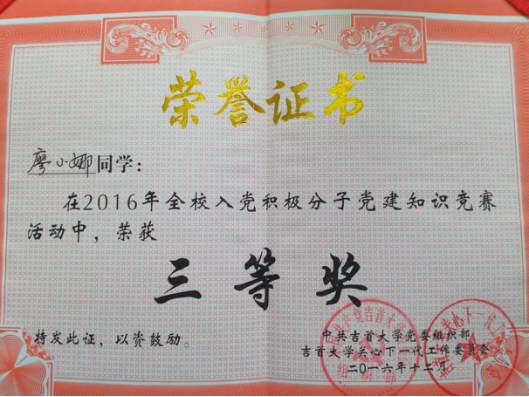 荣誉证书
廖小娜同学：
在2016年全校入党积极分子党建知识竞赛
活动中，荣获
三等奖
特发此证，以资鼓励。
中共吉首大学党委组织部
吉首大学关心下一代工作委员会
二〇一六年十二月